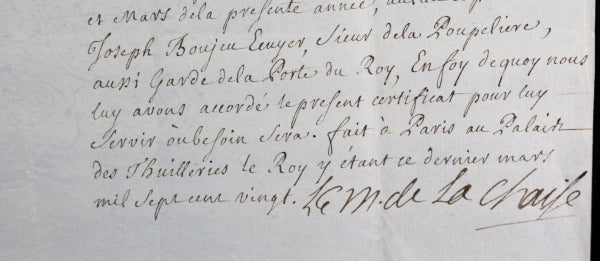 et Mars dela presente année,
Joseph Boujeu Ecuyer, Sieur dela Poupeliere,
aussi Garde dela Porte du Roy, En foy dequoy nous
luy avons accordé le present certificat pour luy
servir où besoin sera. fait à Paris au Palais
des Thuilleries le Roy y étant ce dernier mars
mil sept cent vingt. Le M. de La Chaise